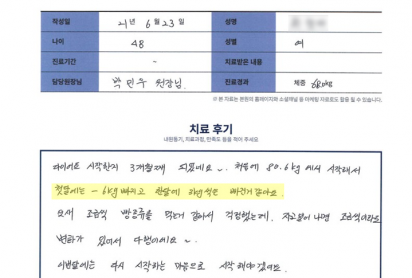 작성일 21년 6월 23일 성명
나이 48 성별 여
진료기간 - 치료받은 내용
담당원장님 박민우 원장님. 진료경과 체중 68.0kg
※ 본 자료는 본원의 홈페이지와 소셜채널 등 마케팅 자료로도 활용 될 수 있습니다.
치료 후기
내원동기, 치료과정, 만족도 등을 적어 주세요
다이어트 시작한지 3개월째 되었네요. 처음에 80.6kg 에서 시작해서
첫달에는 -6kg 빠지고 한달에 3kg씩은 빠진거 같아요.
요새 조금씩 빵종류를 먹는거 같아서 걱정했는데. 자고일어나면 조금씩이라도
변화가 있어서 다행이에요
이번달에는 다시 시작하는 마음으로 시작해야겠어요.